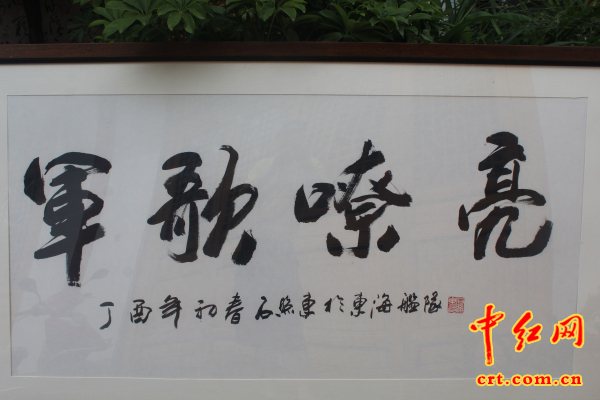 軍歌嘹亮
丁酉年初春石照東於東海艦隊
中红网
crt.com.cn